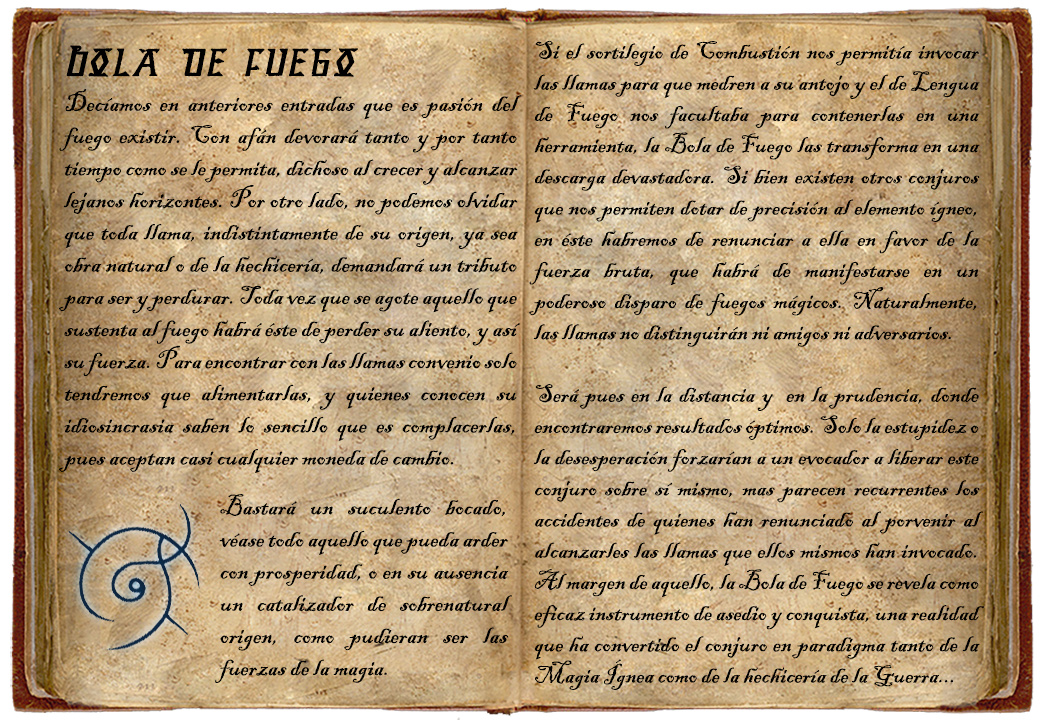 BOLA DE FUEGO
Decíamos en anteriores entradas que es pasión del
fuego existir. Con afán devorará tanto y por tanto
tiempo como se le permita, dichoso al crecer y alcanzar
lejanos horizontes. Por otro lado, no podemos olvidar
que toda llama, indistintamente de su origen, ya sea
obra natural o de la hechicería, demandará un tributo
para ser y perdurar. Toda vez que se agote aquello que
sustenta al fuego habrá éste de perder su aliento, y así
su fuerza. Para encontrar con las llamas convenio solo
tendremos que alimentarlas, y quienes conocen su
idiosincrasia saben lo sencillo que es complacerlas,
pues aceptan casi cualquier moneda de cambio.
Bastará un suculento bocado,
véase todo aquello que pueda arder
con prosperidad, o en su ausencia
un catalizador de sobrenatural
origen, como pudieran ser las
fuerzas de la magia.
Si el sortilegio de Combustión nos permitía invocar
las llamas para que medren a su antojo y el de Lengua
de Fuego nos facultaba para contenerlas en una
herramienta, la Bola de Fuego las transforma en una
descarga devastadora. Si bien existen otros conjuros
que nos permiten dotar de precisión al elemento ígneo,
en éste habremos de renunciar a ella en favor de la
fuerza bruta, que habrá de manifestarse en un
poderoso disparo de fuegos mágicos. Naturalmente,
las llamas no distinguirán ni amigos ni adversarios.
Será pues en la distancia y en la prudencia, donde
encontraremos resultados óptimos. Solo la estupidez o
la desesperación forzarían a un evocador a liberar este
conjuro sobre sí mismo, mas parecen recurrentes los
accidentes de quienes han renunciado al porvenir al
alcanzarles las llamas que ellos mismos han invocado.
Al margen de aquello, la Bola de Fuego se revela como
eficaz instrumento de asedio y conquista, una realidad
que ha convertido el conjuro en paradigma tanto de la
Magia Ígnea como de la hechicería de la Guerra...